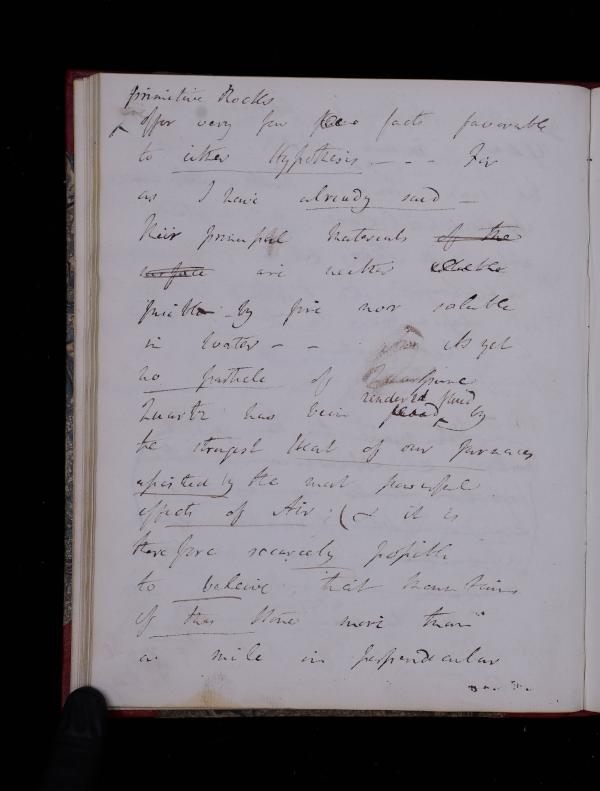 primitive Rocks
offer very few facts favorable
to either Hypothesis - - - For
as I have already said -
their principal Materials of the
surface are neither
fusible - by fire nor soluble
in Water - - As yet
no particle of pure
rendered fluid
Quartz has been by
the strongest Heat of our furnaces
assisted by the most powerful
effects of Air; (& it is
therefore scarcely possible
to beleive that Mountains
of this stone more than
a mile in perpendicular